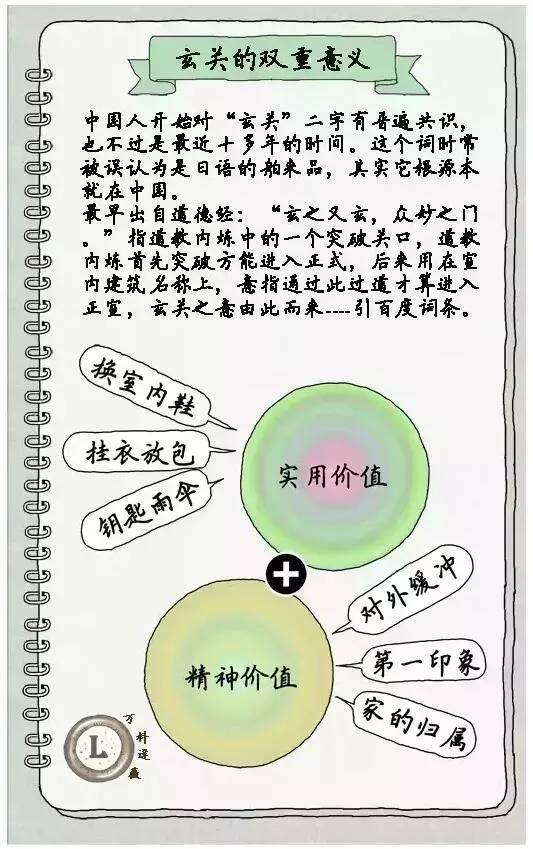 玄关的双重意义
中国人开始对“玄关”二字有普遍共识，
也不过是最近十多年的时间。这个词时常
被误认为是日语的舶来品，其实它根源本
就在中国。
最早出自道德经：“玄之又玄，众妙之门
。”指道教内炼中的一个突破关口，道教
内炼首先突破方能进入正式，后来用在室
内建筑名称上，意指通过此过道才算进入
正室，玄关之意由此而来----引百度词条。
换室内鞋
挂衣放包
钥匙雨伞
实用价值
+
对外缓冲
第一印象
家的归属
精神价值
L
万科